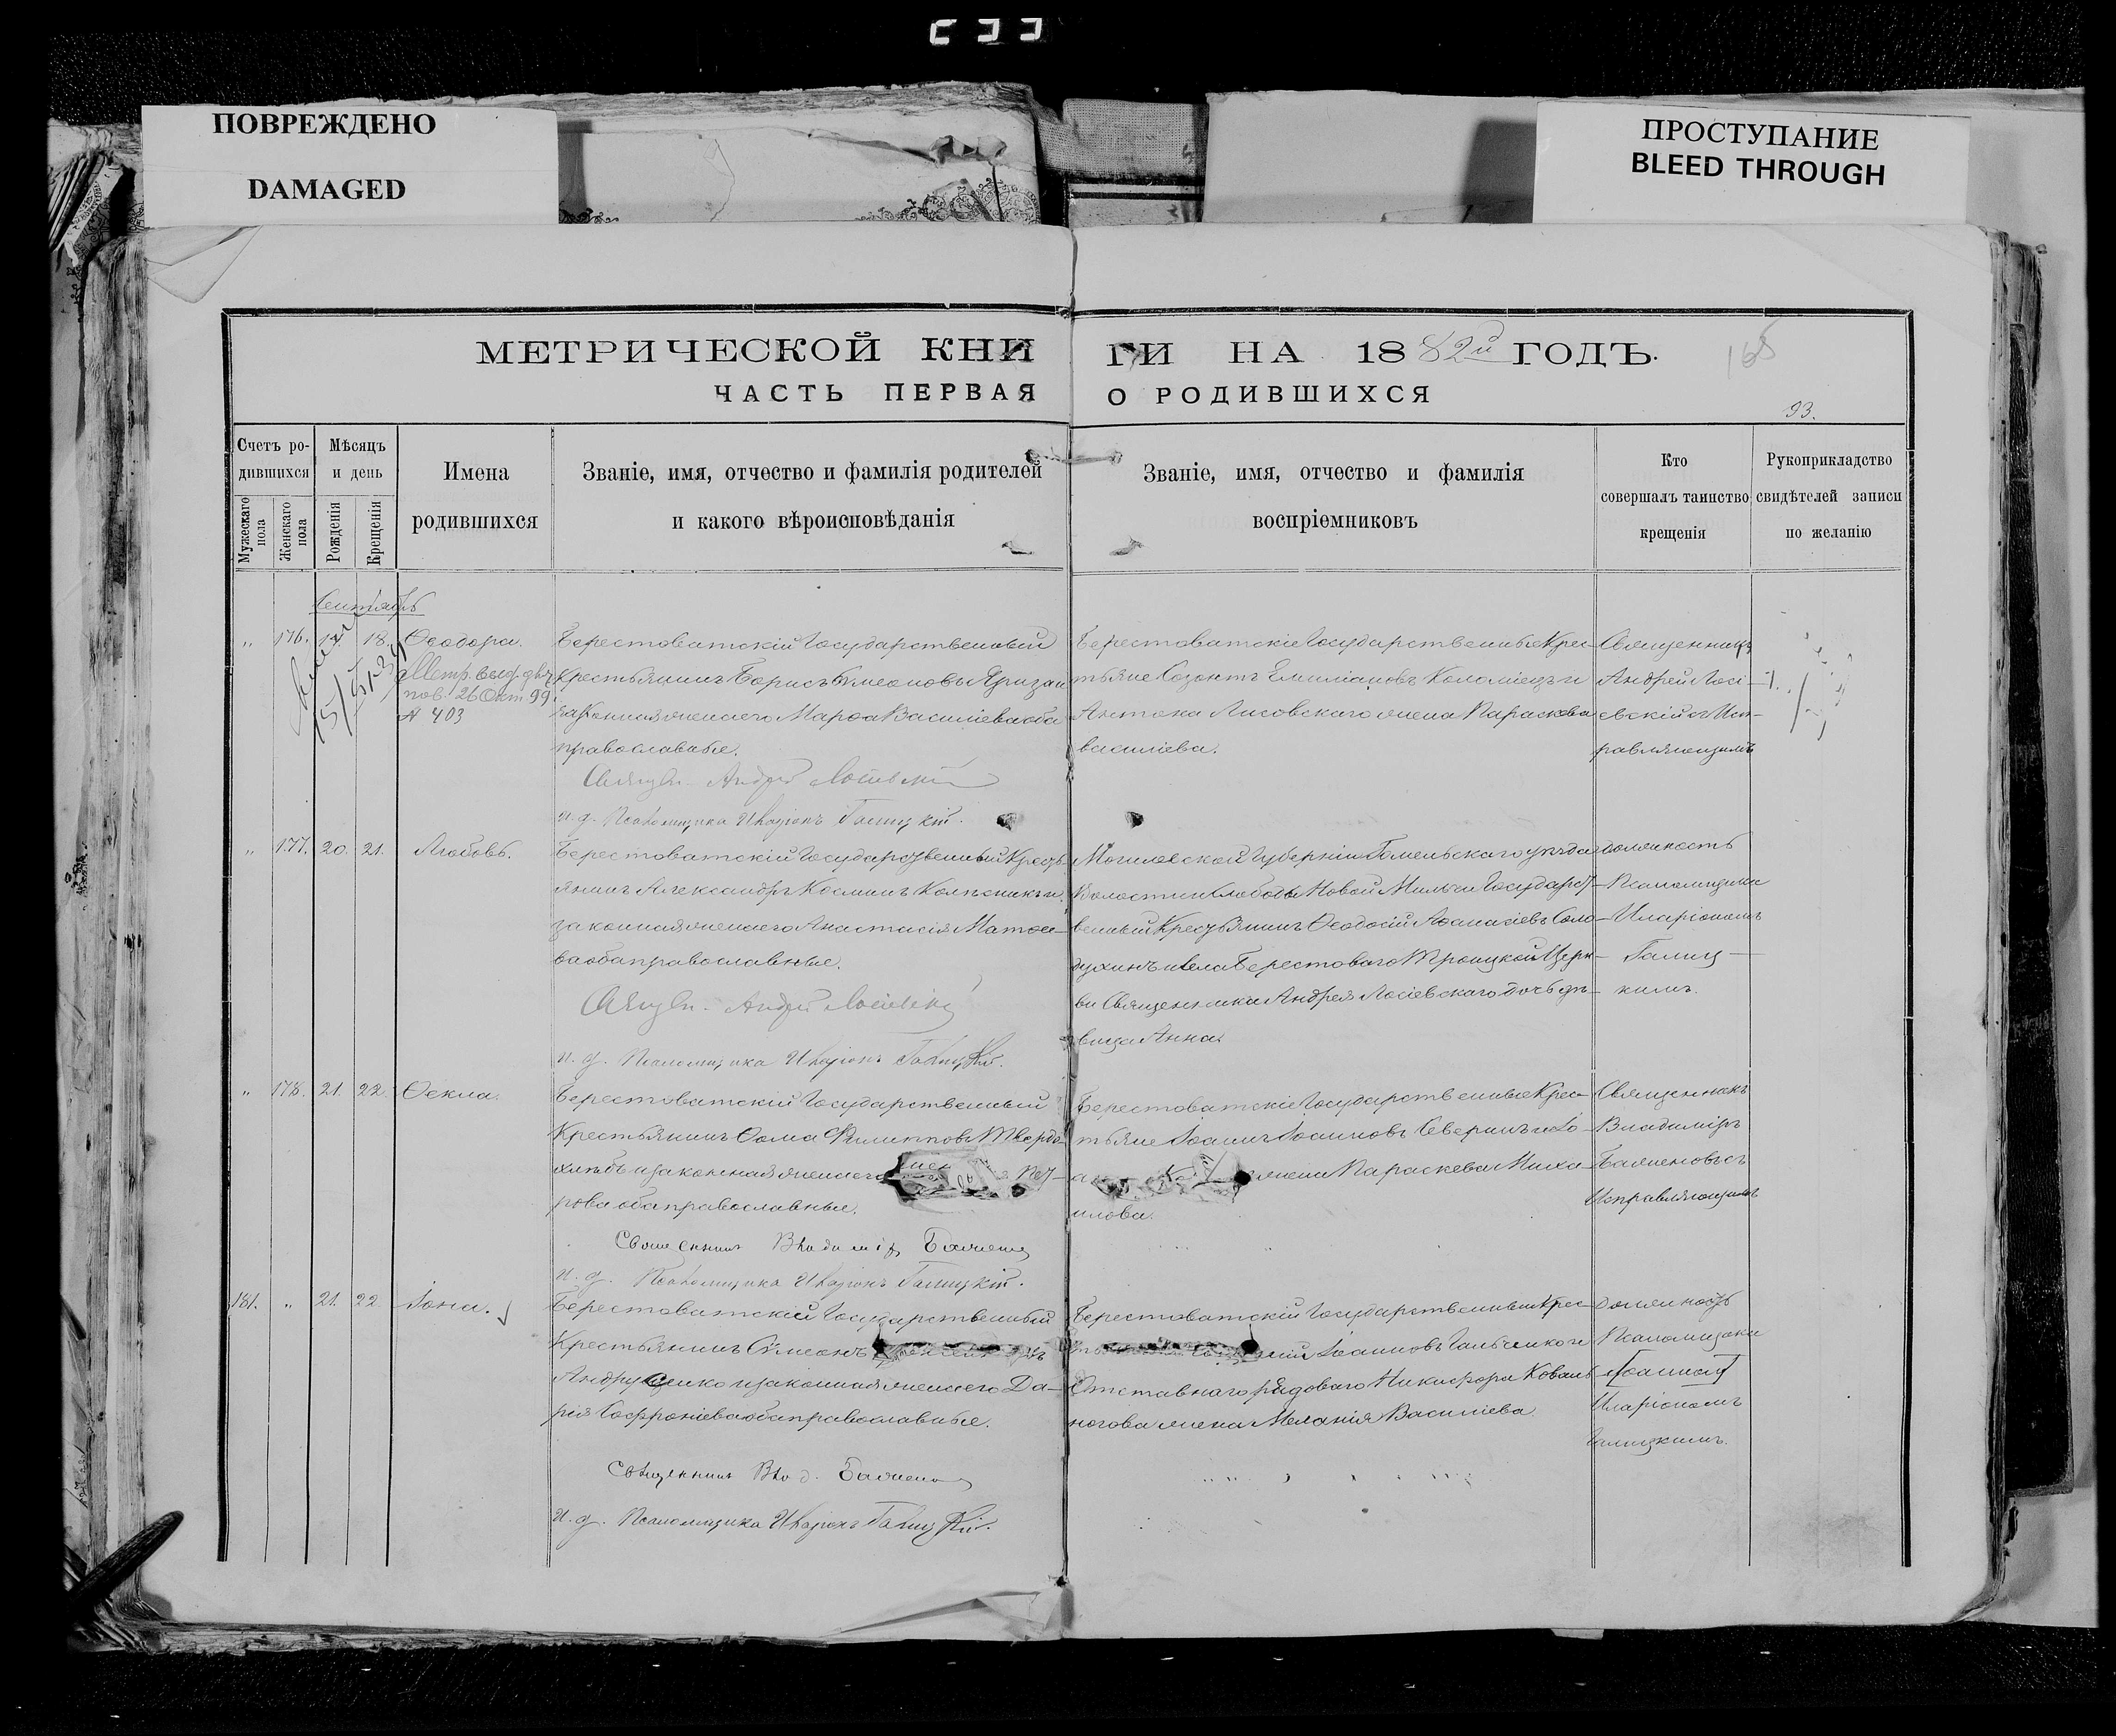 ПОВРЕЖДЕНО
DAMAGED
ПРОСТУПАНИЕ
BLEED THROUGH
МЕТРИЧЕСКОЙ КНИ ГИ НА 1882й ГОДЪ.
165
ЧАСТЬ ПЕРВАЯ О РОДИВШИХСЯ
93.
Счетъ ро-
дившихся
Мужескаго пола
Женскаго пола
Мѣсяцъ
и день
Рожденія
Крещенія
Имена
родившихся
Званіе, имя, отчество и фамилія родителей
и какого вѣроисповѣданія
Званіе, имя, отчество и фамилія
воспріемниковъ
Кто
совершалъ таинство
крещенія
Рукоприкладство
свидѣтелей записи
по желанію
Сентябрь
„ 176. 17. 18. Ѳеодора.
Метр. выд.
нов. 26 Окт 99
№ 403
Берестоватскій Государственный
Крестьянинъ Борисъ Сѵмеоновъ
законная жена его Марѳа Василіева оба
православные.
Священ. Андрей Лосіевскій
и. д. Псаломщика Иларіонъ Галицкій.
Берестоватскіе Государственные Крес-
тьяне Созонтъ Емиліановъ Коломіецъ и
Антона Лисовскаго жена Параскева
Василіева.
Священникъ
Андрей Лосі-
евскій съ Исп-
равляющимъ
„ 177. 20. 21. Любовь.
Берестоватскій Государственный Кресть-
янинъ Александръ Косминъ Колѣсникъ и
законная жена его Анастасія Матѳе-
ва оба православные.
Священ. Андрей Лосіевскій
и. д. Псаломщика Иларіонъ Галицкій.
Могилевской Губерніи Гомельскаго уѣзда
Волости и Слободы Новой Мильчи Государст-
венный Крестьянинъ Ѳеодосій Аѳанасіевъ Соло-
духинъ и села Берестоваго Троицкой Церк-
ви Священника Андрея Лосіевскаго дочь дѣ-
вица Анна.
должность
Псаломщика
Иларіономъ
Галиц-
кимъ.
„ 178. 21. 22. Ѳекла.
Берестоватскій Государственный
Крестьянинъ Ѳома Филипповъ Твердо-
хлѣбъ и законная жена его Пет-
рова оба православные.
Священникъ Владиміръ Баженовъ
и. д. Псаломщика Иларіонъ Галицкій.
Берестоватскіе Государственные Крес-
тьяне Іоаннъ Іоанновъ Северинъ и Іо-
а жена Параскева Миха-
илова.
Священникъ
Владиміръ
Баженовъ съ
Исправляющимъ
181. „ 21. 22. Іона.
Берестоватскій Государственный
Крестьянинъ Сѵмеонъ
Андрущенко и законная жена его Да-
рія Софроніева оба православные.
Священникъ Влад. Баженовъ
и. д. Псаломщика Иларіонъ Галицкій.
Берестоватскій Государственный Крес-
Іоанновъ Гальченко и
Отставнаго рядоваго Никифора Коваль-
ногова жена Меланія Василіева
должность
Псаломщика
Иларіономъ
Галицкимъ.